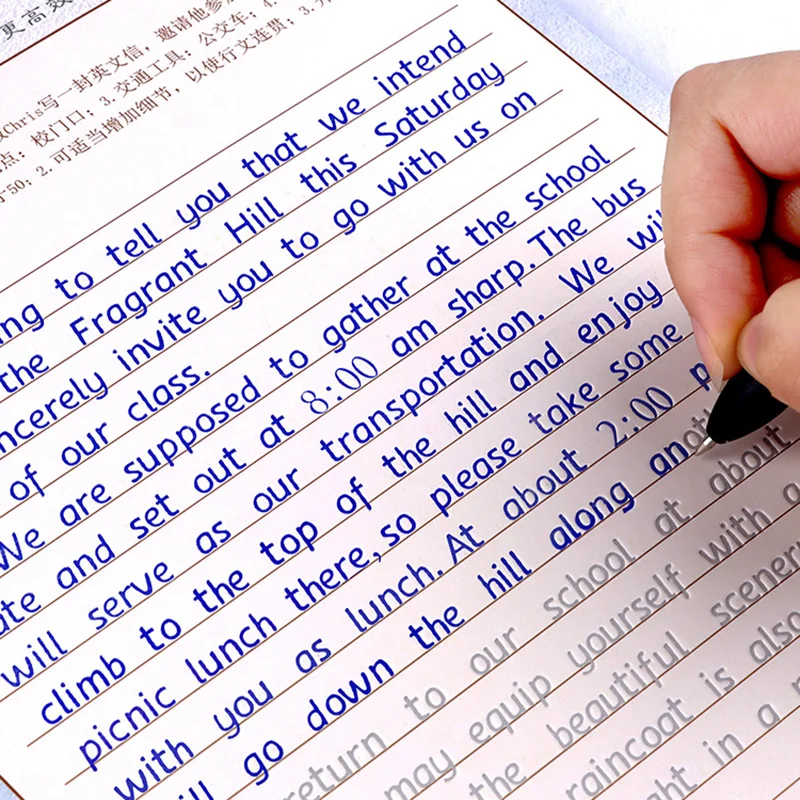 更高效
Chris写一封英文信，邀请他参
点：校门口；3.交通工具：公交车；4.
50；2.可适当增加细节，以使行文连贯；3.
ng to tell you that we intend
the Fragrant Hill this Saturday
ncerely invite you to go with us on
of our class.
We are supposed to gather at the school
ate and set out at 8:00 am sharp.The bus
will serve as our transportation. We wil
climb to the top of the hill and enjoy
picnic lunch there,so please take some
with you as lunch.At about 2:00 p
ill go down the hill along anoth
return to our school at about
may equip yourself with a
the beautiful scener
raincoat is also
ght in a